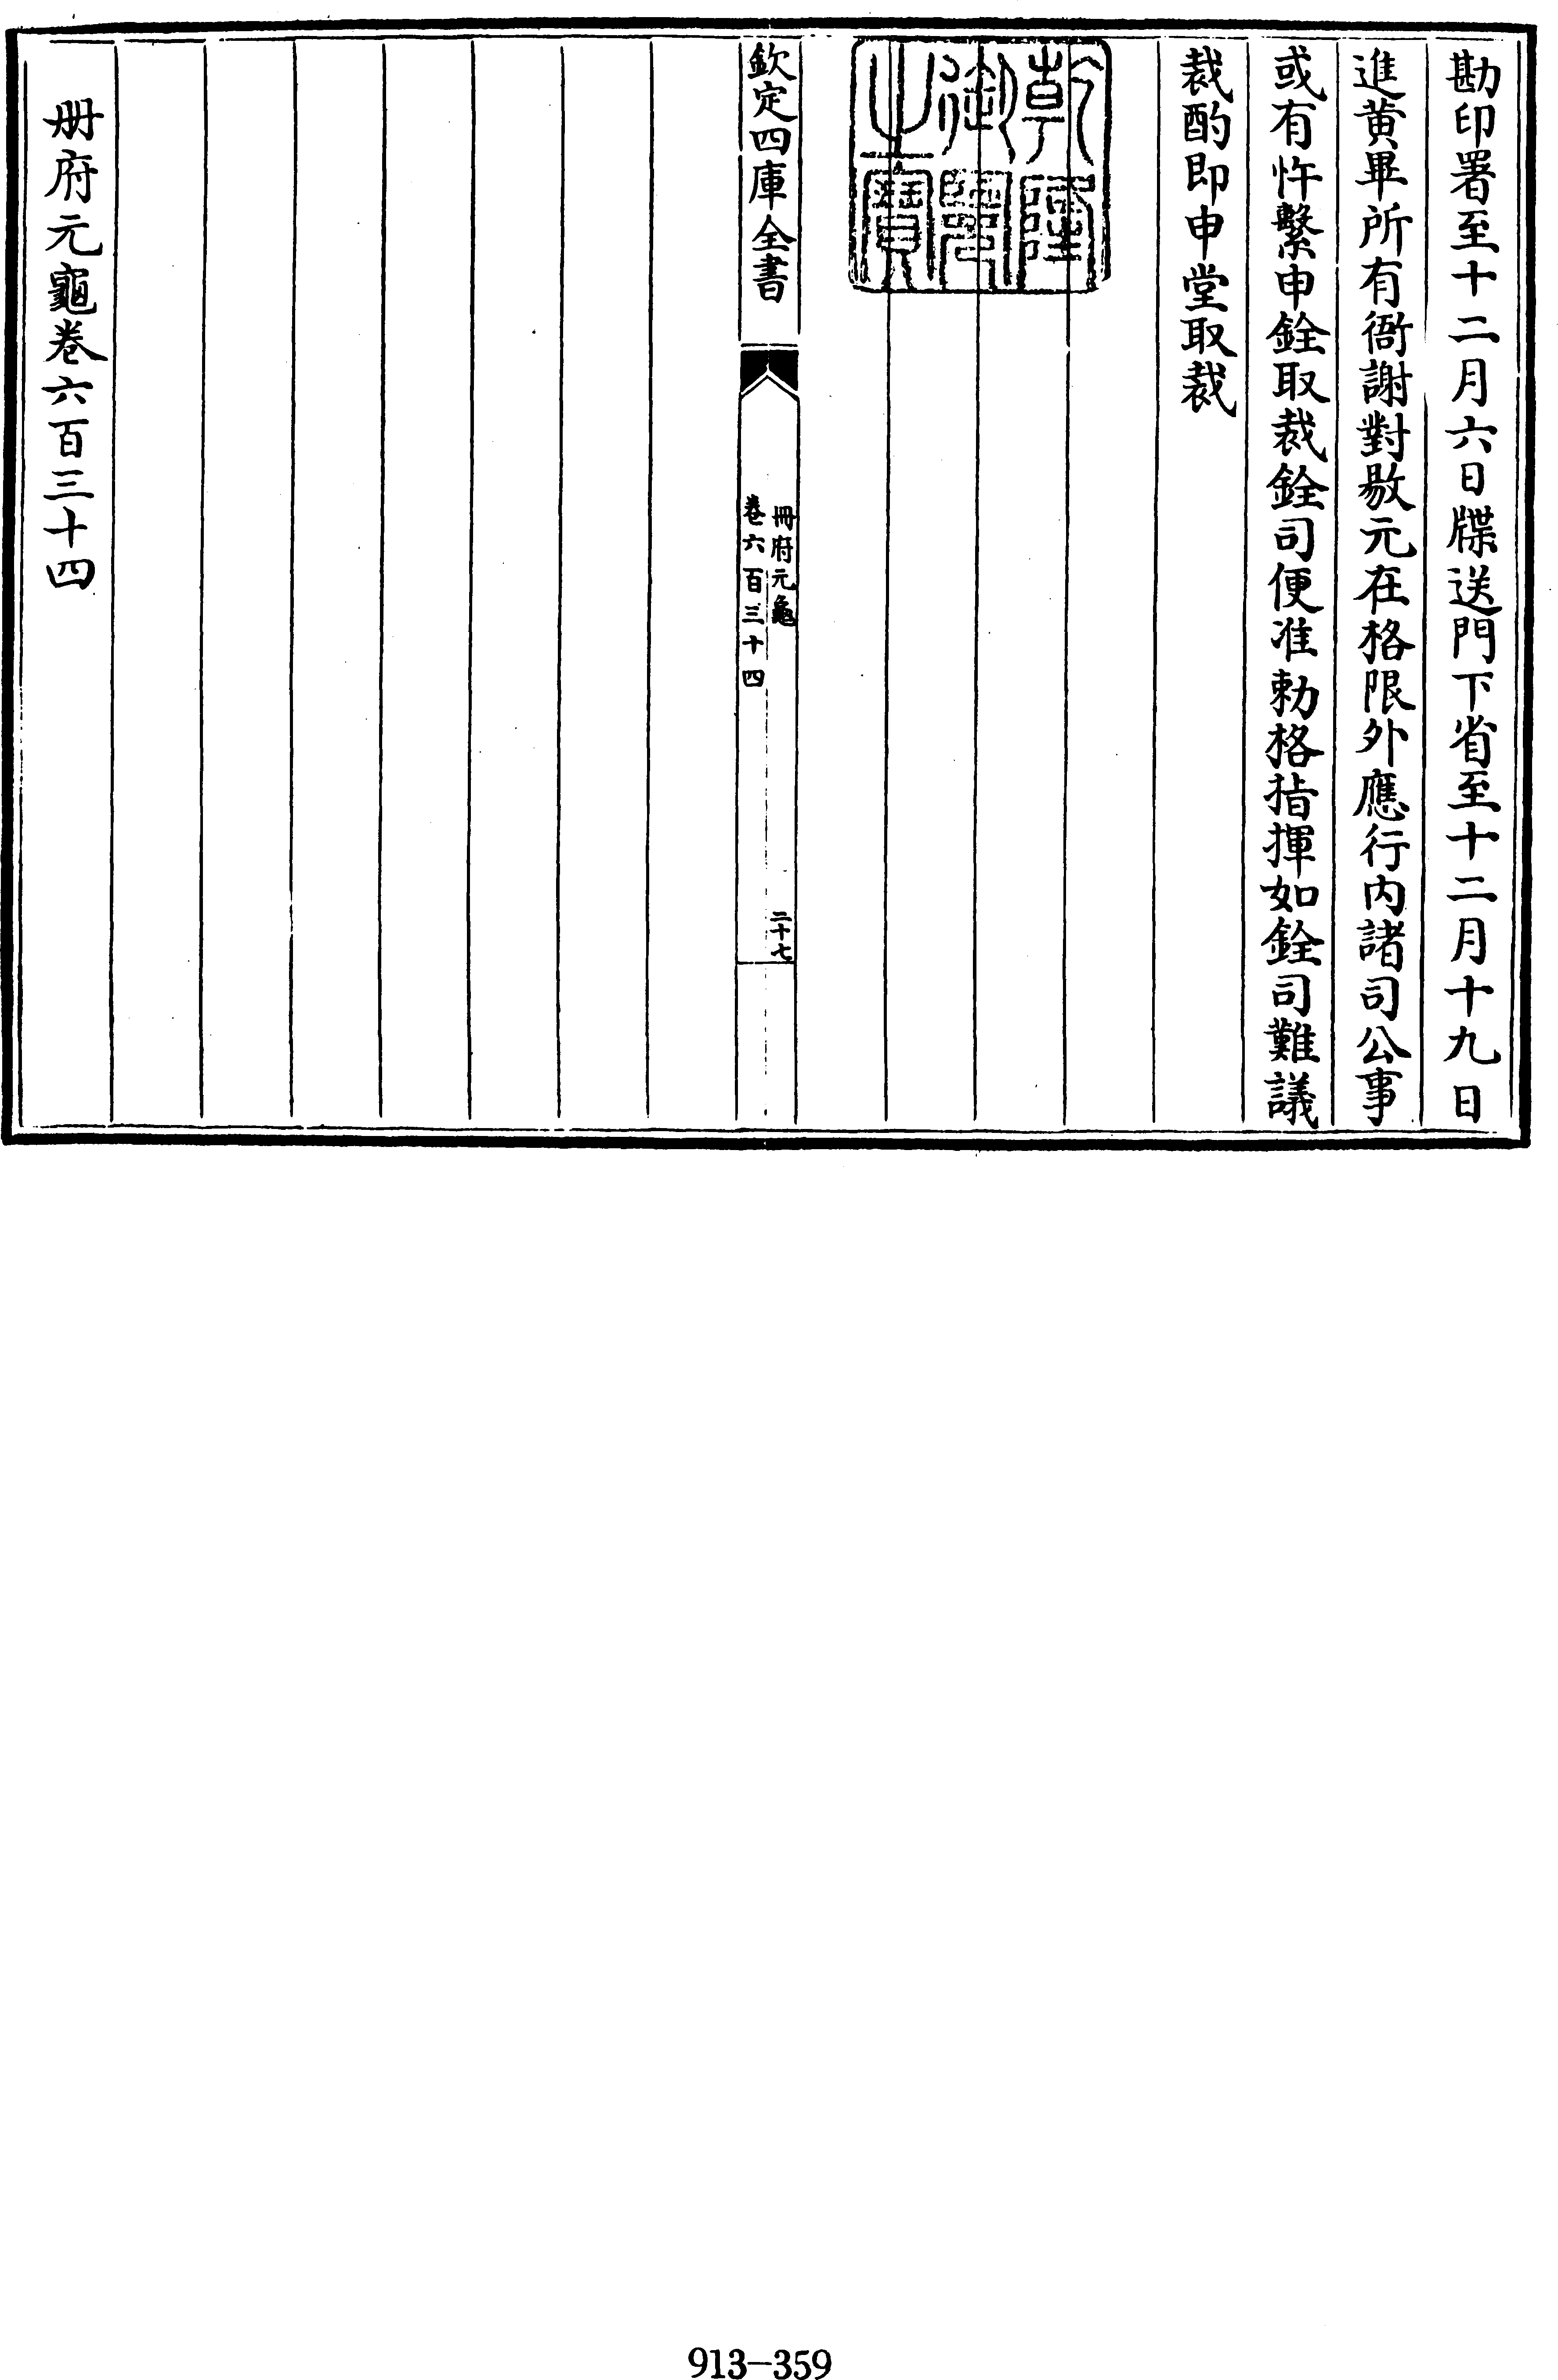 勘印署至十二月六日牒送門下省至十二月十九日
進黃畢所有衙謝對敭元在格限外應行内諸司公事
或有忤繫申銓取裁銓司便准勅格指揮如銓司難議
裁酌即申堂取裁
乾隆御覽之寶
欽定四庫全書
冊府元龜
卷六百三十四
二十七
冊府元龜卷六百三十四
913-359